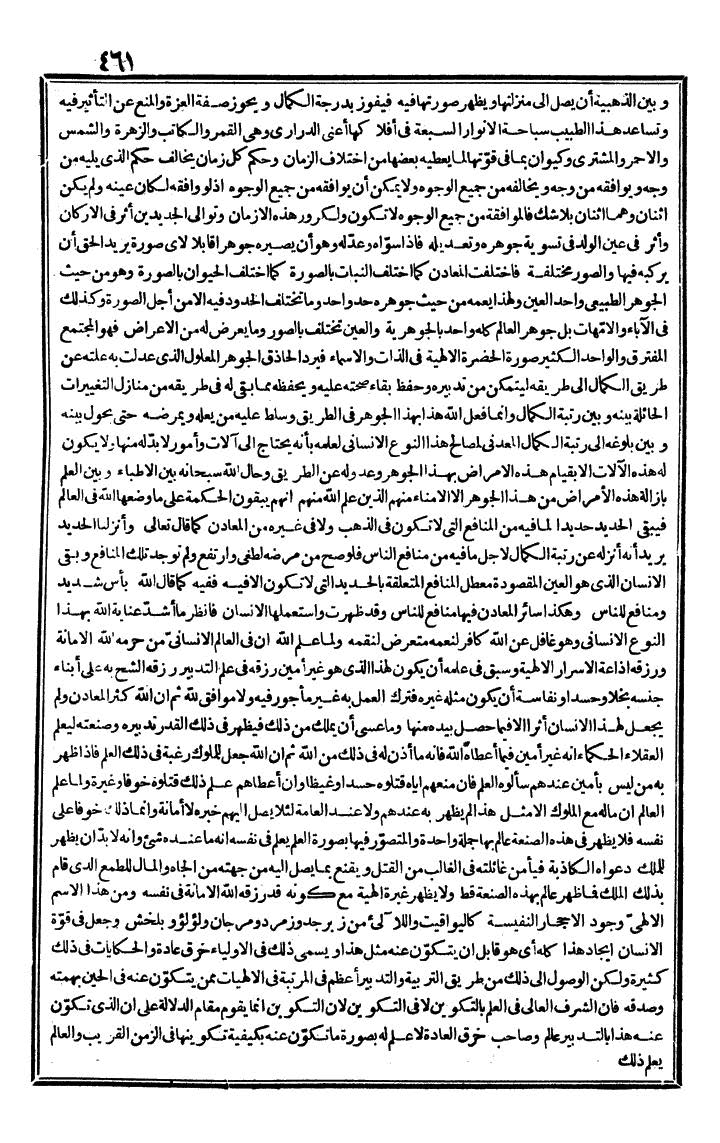 ٤٦١
و بين الذهبية أن يصل الى منزلتها و يظهر صورتها فيه فيفوز بدرجة الكمال و يحوز صفة العزة والمنع عن التأثير فيه
وتساعد هذا الطبيب سباحة الانوار السبعة فى أفلاكها أعنى الدرارى وهى القمر والكاتب والزهرة والشمس
والاحمر والمشترى وكيوان بما فى قوتها لما يعطيه بعضها من اختلاف الزمان وحكم كل زمان يخالف حكم الذى يليه من
وجه و يوافقه من وجه و يخالفه من جميع الوجوه ولا يمكن أن يوافقه من جميع الوجوه اذ لو وافقه لكان عينه ولم يكن
اثنان وهما اثنان بلا شك فالموافقة من جميع الوجوه لا تكون ولكرور هذه الازمان وتوالى الجديدين أثر فى الاركان
وأثر فى عين الولد فى تسوية جوهره وتعديله فاذا سواه وعدله وهو أن يصيره جوهرا قابلا لاى صورة يريد الحق أن
يركبه فيها والصور مختلفة فاختلفت المعادن كما اختلف النبات بالصورة كما اختلف الحيوان بالصورة وهو من حيث
الجوهر الطبيعى واحد العين ولهذا يعمه من حيث جوهره حد واحد وما تختلف الحدود فيه الا من أجل الصورة وكذلك
فى الآباء والامهات بل جوهر العالم كله واحد بالجوهرية والعين تختلف بالصور وما يعرض له من الاعراض فهو المجتمع
المفترق والواحد الكثير صورة الحضرة الالهية فى الذات والاسماء فيرد الحاذق الجوهر المعلول الذى عدلت به علته عن
طريق الكمال الى طريقه ليتمكن من تدبيره وحفظ بقاء صحته عليه و يحفظه مما بقى له فى طريقه من منازل التغييرات
الحائلة بينه و بين رتبة الكمال وانما فعل الله هذا بهذا الجوهر فى الطريق وساط عليه من يعله و يمرضه حتى يحول بينه
و بين بلوغه الى رتبة الكمال المعدنى لمصالح هذا النوع الانسانى لعلمه بأنه يحتاج الى آلات وأمور لا بد له منها ولا يكون
له هذه الآلات الا بقيام هذه الامراض بهذا الجوهر وعدوله عن الطريق وحال الله سبحانه بين الاطباء و بين العلم
بازالة هذه الأمراض من هذا الجوهر الا الامناء منهم الذين علم الله منهم انهم يبقون الحكمة على ما وضعها الله فى العالم
فيبقى الحديد حديدا لما فيه من المنافع التى لا تكون فى الذهب ولا فى غيره من المعادن كما قال تعالى وأنزلنا الحديد
يريد أنه أنزله عن رتبة الكمال لاجل ما فيه من منافع الناس فلو صح من مرضه لطغى وارتفع ولم توجد تلك المنافع و بقى
الانسان الذى هو العين المقصودة معطل المنافع المتعلقة بالحديد التى لا تكون الا فيه ففيه كما قال الله بأس شديد
ومنافع للناس وهكذا سائر المعادن فيها منافع للناس وقد ظهرت واستعملها الانسان فانظر ما أشد عناية الله بهذا
النوع الانسانى وهو غافل عن الله كافر لنعمه متعرض لنقمه ولما علم الله ان فى العالم الانسانى من حرمه الله الامانة
ورزقه اذاعة الاسرار الالهية وسبق فى علمه أن يكون لهذا الذى هو غير أمين رزقه فى علم التدبير رزقه الشح به على أبناء
جنسه بخلا وحسدا ونفاسة أن يكون مثله غيره فترك العمل به غير مأجور فيه ولا موافق لله ثم ان الله كثر المعادن ولم
يجعل لهذا الانسان أثرا الا فيما حصل بيده منها وما عسى أن يملك من ذلك فيظهر فى ذلك القدر تدبيره وصنعته ليعلم
العقلاء الحكماء انه غير أمين فيما أعطاه الله فانه ما أذن له فى ذلك من الله ثم ان الله جعل للملوك رغبة فى ذلك العلم فاذا ظهر
به من ليس بأمين عندهم سألوه العلم فان منعهم اياه قتلوه حسدا وغيظا وان أعطاهم علم ذلك قتلوه خوفا وغيرة ولما علم
العالم ان ماله مع الملوك الا مثل هذا لم يظهر به عندهم ولا عند العامة لئلا يصل اليهم خبره لا أمانة وانما ذلك خوفا على
نفسه فلا يظهر فى هذه الصنعة عالم بها جلة واحدة والمتصور فيها بصورة العلم يعلم فى نفسه انه ما عنده شئ وانه لا بد ان يظهر
للملك دعواه الكاذبة فيأمن غائلته فى الغالب من القتل و يقنع بما يصل اليه من جهته من الجاه والمال للطمع الذى قام
بذلك الملك فما ظهر عالم بهذه الصنعة قط ولا يظهر غيرة الهية مع كونه قد رزقه الله الامانة فى نفسه ومن هذا الاسم
الالهى وجود الاحجار النفيسة كاليواقيت واللآلئ من زبرجد وزمرد ومرجان ولؤلؤ و بلخش وجعل فى قوة
الانسان ايجاد هذا كله أى هو قابل ان يتكون عنه مثل هذا و يسمى ذلك فى الاولياء خرق عادة والحكايات فى ذلك
كثيرة ولكن الوصول الى ذلك من طريق التربية والتدبير أعظم فى المرتبة فى الالهيات ممن يتكون عنه فى الحين بهمته
وصدقه فان الشرف العالى فى العلم بالتكوين لا فى التكوين لان التكوين انما يقوم مقام الدلالة على ان الذى تكون
عنه هذا بالتدبير عالم وصاحب خرق العادة لا علم له بصورة ما تكون عنه بكيفية تكوينها فى الزمن القريب والعالم
يعلم ذلك